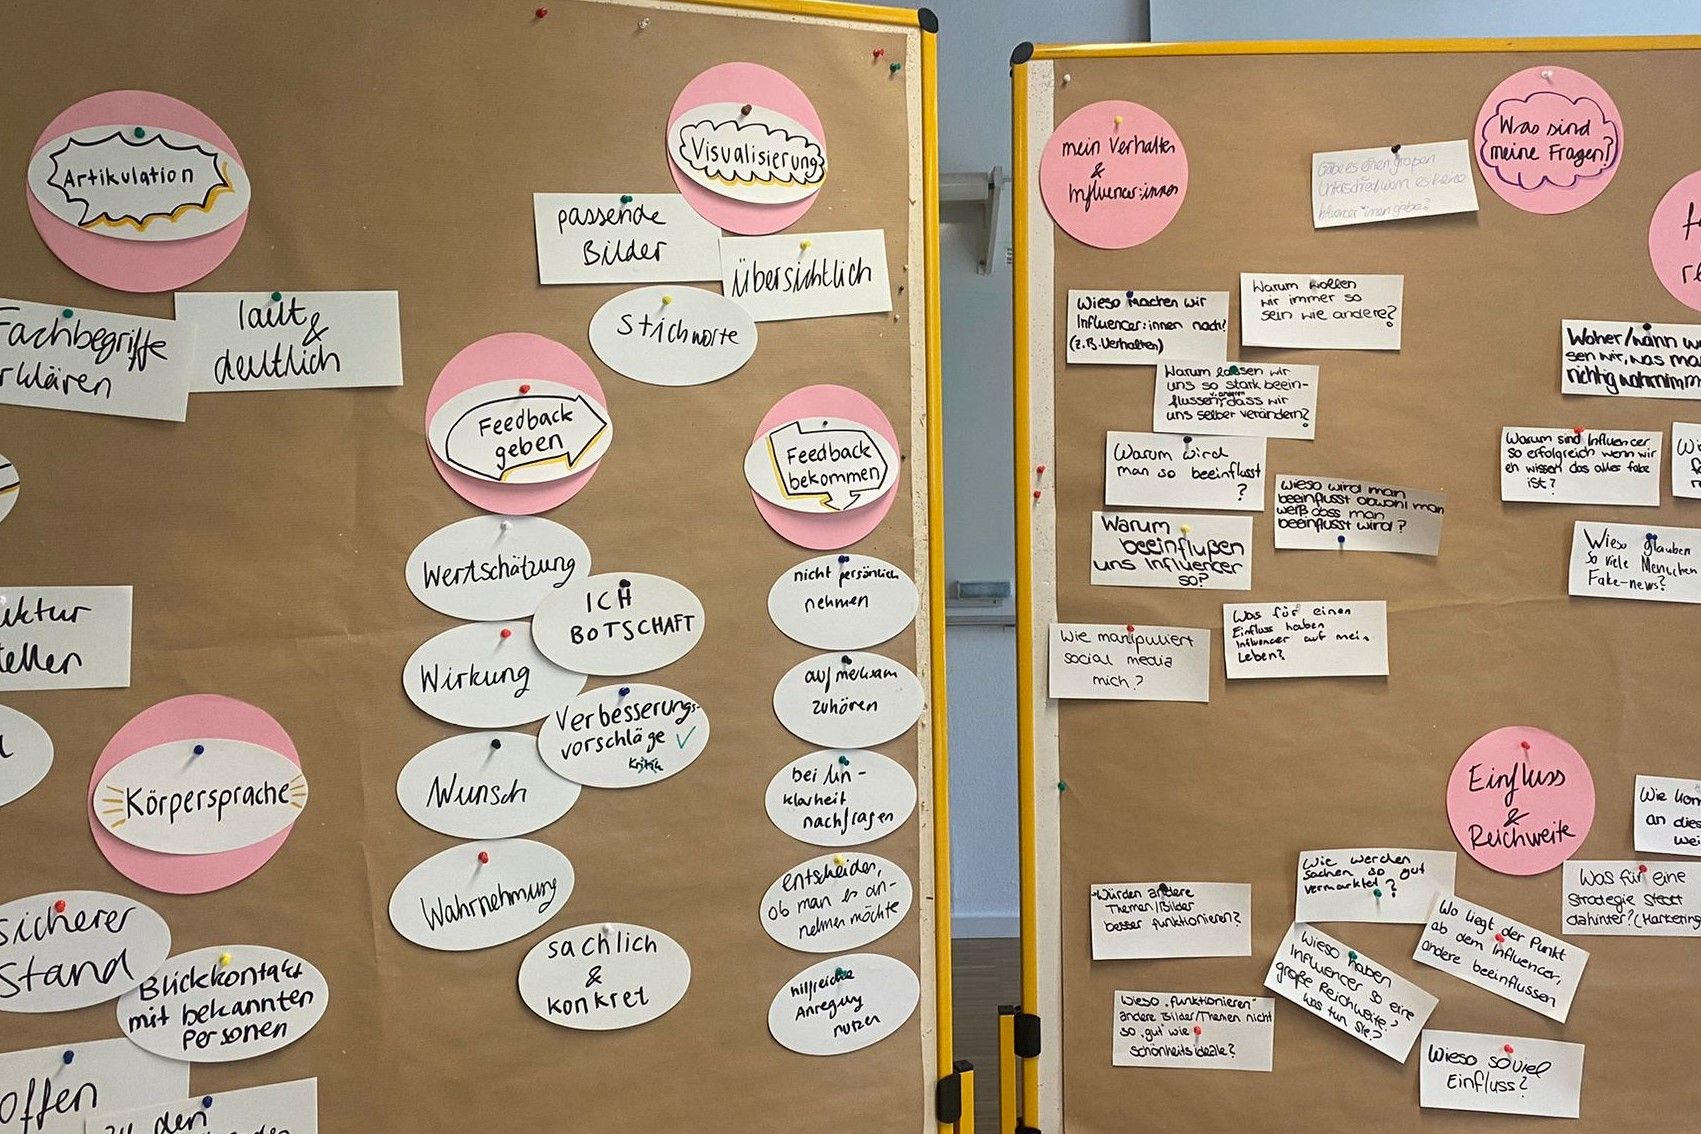 Artikulation
Fachbegriffe
rklären
laut
&
deutlich
Visualisierung
passende
Bilder
übersichtlich
Stichworte
Feedback
geben
Wertschätzung
ICH
BOTSCHAFT
Wirkung
Verbesserungs-
vorschläge ✓
Kritik
Wunsch
Wahrnehmung
sachlich
&
konkret
Feedback
bekommen
nicht persönlich
nehmen
aufmerksam
zuhören
bei Un-
klarheit
nachfragen
entscheiden,
ob man es an-
nehmen möchte
hilfreiche
Anregung
nutzen
ktur
tellen
Körpersprache
sicherer
Stand
Blickkontakt
mit bekannten
Personen
offen
zu den
mein Verhalten
&
Influencer:innen
Wieso machen wir
Influencer:innen nach?
(z.B. Verhalten)
Warum wollen
wir immer so
sein wie andere?
Warum lassen wir
uns so stark beein-
flussen, dass wir
v. anderen
uns selber verändern?
Warum wird
man so beeinflusst
?
Wieso wird man
beeinflusst obwohl man
weiß dass man
beeinflusst wird?
Warum
beeinflußen
uns Influencer
so?
Was für einen
Einfluss haben
Influencer auf mein
Leben?
Wie manipuliert
social media
mich?
Was sind
meine Fragen?
Gäbe es einen großen
Unterschied wenn es keine
Influencer*innen gäbe?
Woher/wann w
sen wir, was ma
richtig wahrnimm
Warum sind Influencer
so erfolgreich wenn wir
eh wissen das alles fake
ist?
Wieso glauben
so viele Menschen
Fake-news?
Einfluss
&
Reichweite
Wie kom
an dies
wei
Wie werden
Sachen so gut
vermarktet?
Was für eine
Strategie steckt
dahinter? (Marketing
Würden andere
Themen/Bilder
besser funktionieren?
Wo liegt der Punkt
ab dem Influencer,
andere beeinflussen
Wieso haben
Influencer so eine
große Reichweite?
was tun sie?
Wieso "funktionieren"
andere Bilder/Themen nicht
so "gut" wie
schönheitsideale?
Wieso so viel
Einfluss?